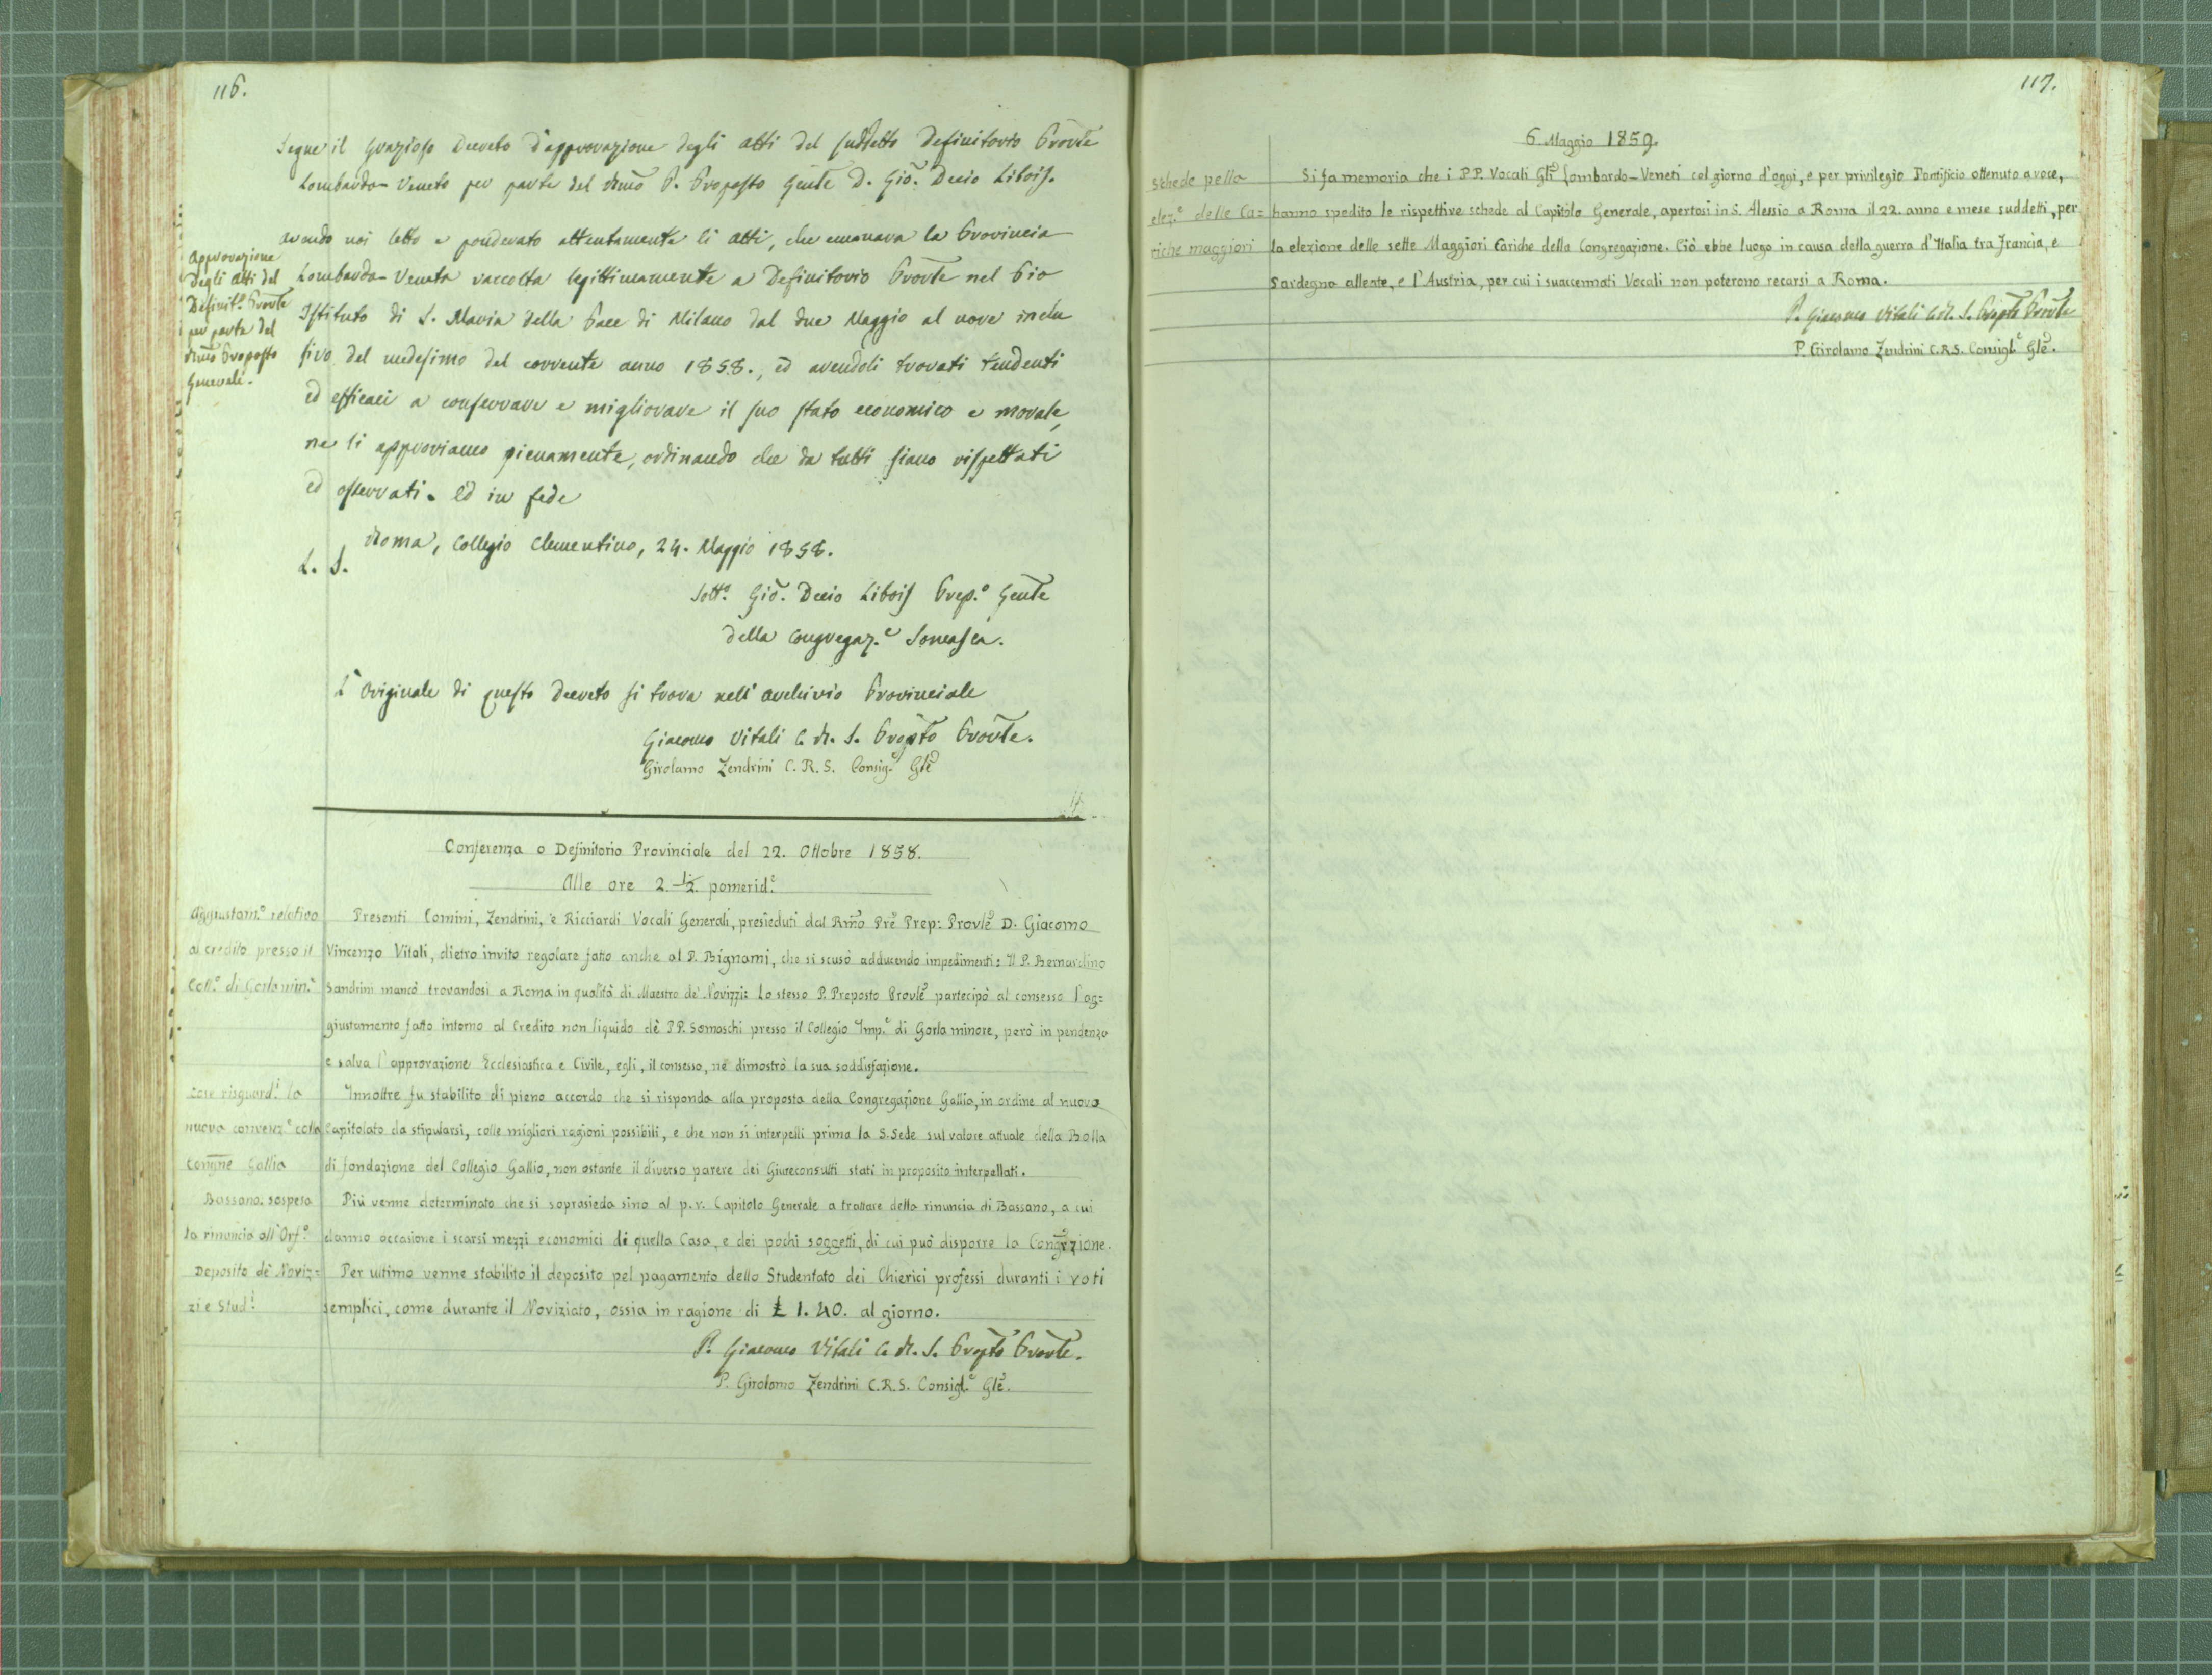 116.
Segue il grazioso Decreto d'approvazione degli atti del suddetto Definitorio Provle
Lombardo-Veneto per parte del Rmo P. Proposto Gente D. Gio. Decio Libois.
Approvazione
degli Atti del
Definit.o Provle
per parte del
Rmo Proposto
Generale.
Avendo noi letto e ponderato attentamente li atti, che emanava la Provincia
Lombardo-Veneta raccolta legittimamente a Definitorio Provle nel Pio
Istituto di S. Maria della Pace di Milano dal due Maggio al nove inclu
sivo del medesimo del corrente anno 1858., ed avendoli trovati tendenti
ed efficaci a conservare e migliorare il suo stato economico e morale,
ne li approviamo pienamente, ordinando che da tutti siano rispettati
ed osservati. Ed in fede
Roma, Collegio Clementino, 24. Maggio 1858.
L. S.
Sott.o Gio. Decio Libois Prep.o Gente
della Congregaz.e Somasca.
L'Originale di questo Decreto si trova nell'Archivio Provinciale
Giacomo Vitali C. R. S. Propto Provle.
Girolamo Zendrini C. R. S. Consig.e Gle
Conferenza o Definitorio Provinciale del 22. Ottobre 1858.
Alle ore 2. 1/2 pomerid.e
Aggiustam.o relativo
al credito presso il
Coll.o di Gorla min.e
Presenti Comini, Zendrini, e Ricciardi Vocali Generali, presieduti dal Rmo Pre Prep: Provle D. Giacomo
Vincenzo Vitali, dietro invito regolare fatto anche al P. Bignami, che si scusò adducendo impedimenti: Il P. Bernardino
Sandrini mancò trovandosi a Roma in qualità di Maestro de' Novizzi: Lo stesso P. Proposto Provle partecipò al consesso l'ag=
giustamento fatto intorno al Credito non liquido dè PP. Somaschi presso il Collegio Imp.e di Gorla minore, però in pendenza
e salva l'approvazione Ecclesiastica e Civile, egli, il consesso, ne dimostrò la sua soddisfazione.
Cose risguard.i la
nuova convenz.e colla
Congne Gallia
Innoltre fu stabilito di pieno accordo che si risponda alla proposta della Congregazione Gallia, in ordine al nuovo
Capitolato da stipularsi, colle migliori ragioni possibili, e che non si interpelli prima la S. Sede sul valore attuale della Bolla
di fondazione del Collegio Gallio, non ostante il diverso parere dei Giureconsulti stati in proposito interpellati.
Bassano: sospesa
la rinuncia all'Orf.o
Più venne determinato che si soprasieda sino al p.v. Capitolo Generale a trattare della rinuncia di Bassano, a cui
danno occasione i scarsi mezzi economici di quella Casa, e dei pochi soggetti, di cui può disporre la Congrzione.
Deposito dè Noviz=
zi e Stud.i
Per ultimo venne stabilito il deposito pel pagamento dello Studentato dei Chierici professi duranti i voti
semplici, come durante il Noviziato, ossia in ragione di £ 1. 40. al giorno.
P. Giacomo Vitali C. R. S. Propto Provle.
P. Girolamo Zendrini C.R.S. Consigl.e Gle.
117.
6 Maggio 1859.
Schede pella
elez.e delle Ca=
riche maggiori
Si fa memoria che i PP. Vocali Gli Lombardo-Veneti col giorno d'oggi, e per privilegio Pontificio ottenuto a voce,
hanno spedito le rispettive schede al Capitolo Generale, apertosi in S. Alessio a Roma il 22. anno e mese suddetti, per
la elezione delle sette Maggiori Cariche della Congregazione. Ciò ebbe luogo in causa della guerra d'Italia tra Francia, e
Sardegna alleate, e l'Austria, per cui i suaccennati Vocali non poterono recarsi a Roma.
P. Giacomo Vitali C. R. S. Propto Provle
P. Girolamo Zendrini C.R.S. Consigl.e Gle.